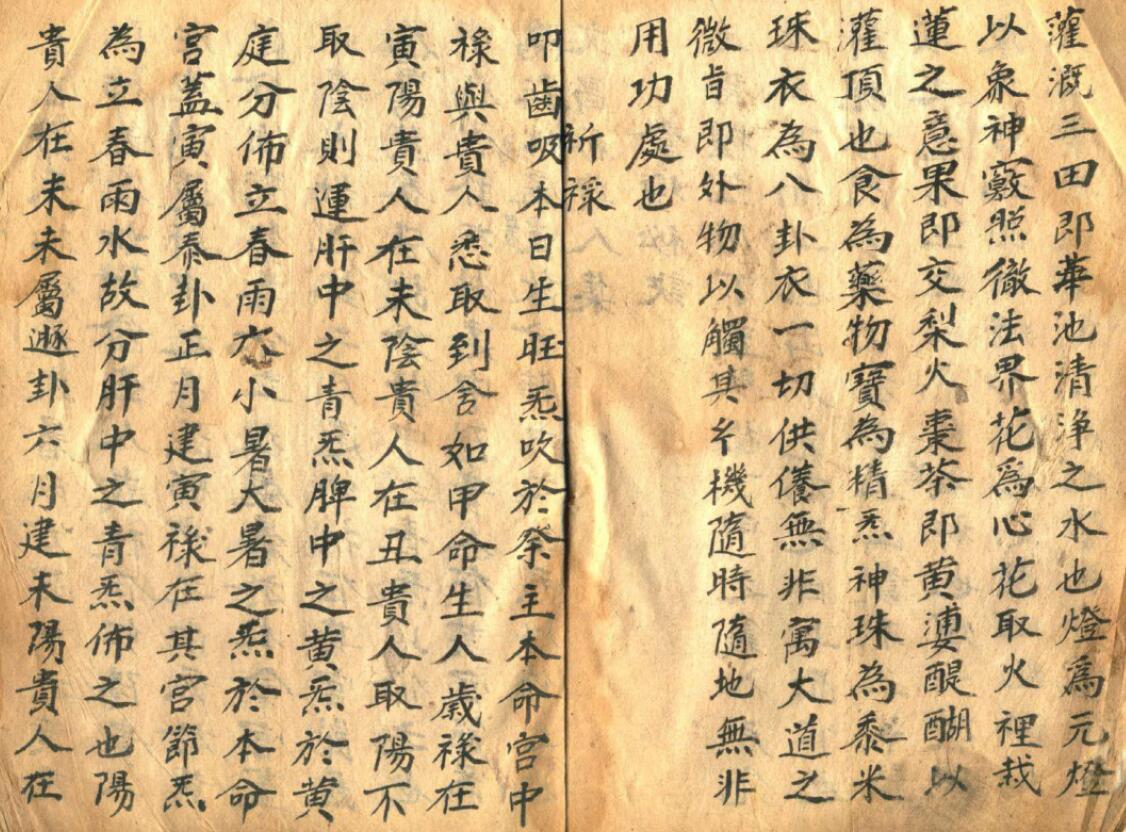 灌溉三田即華池清淨之水也燈爲元燈
以象神竅照徹法界花爲心花取火裡栽
蓮之意果即交梨火棗茶即黄婆醍醐以
灌頂也食為藥物寶為精炁神珠為黍米
珠衣為八卦衣一切供養無非寓大道之
微旨即外物以觸其機隨時隨地無非
用功處也
祈祿
叩齒吸本日生旺炁吹於祭主本命宮中
祿與貴人悉取到舍如甲命生人歲祿在
寅陽貴人在未陰貴人在丑貴人取陽不
取陰則運肝中之青炁脾中之黄炁於黄
庭分佈立春雨水小暑大暑之炁於本命
宮蓋寅屬泰卦正月建寅祿在其宮節炁
為立春雨水故分肝中之青炁佈之也陽
貴人在未未屬遯卦六月建未陽貴人在